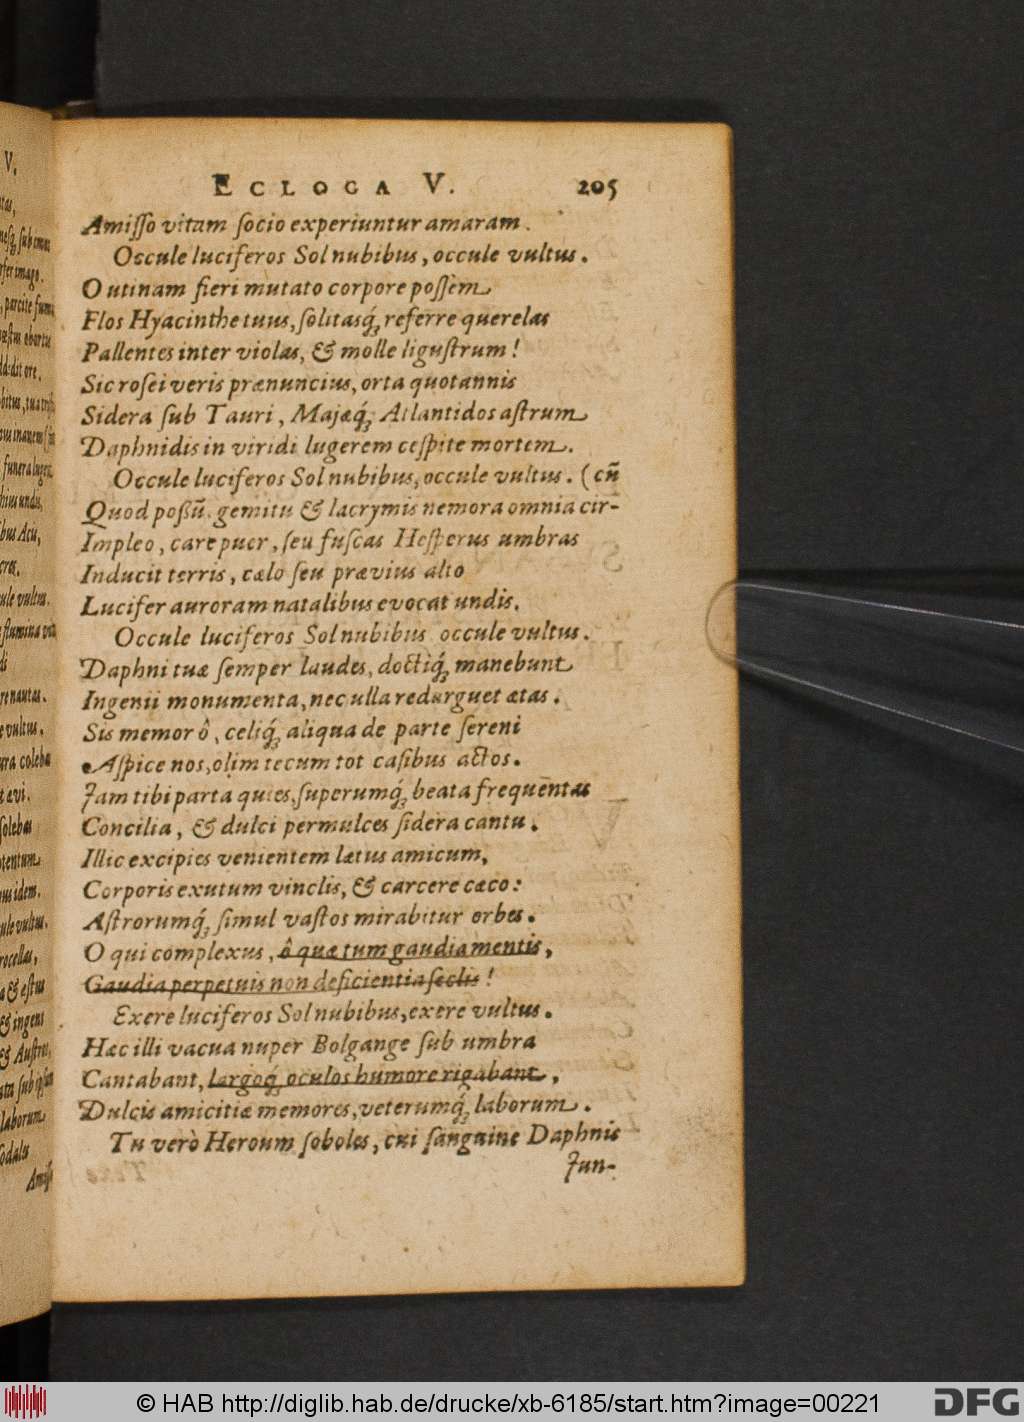 ECLOGA V. 205
Amisso vitam socio experiuntur amaram.
Occule luciferos Sol nubibus, occule vultus.
O utinam fieri mutato corpore possem
Flos Hyacinthe tuus, solitasq́; referre querelas
Pallentes inter violas, & molle ligustrum!
Sic rosei veris prænuncius, orta quotannis
Sidera sub Tauri, Majæq́; Atlantidos astrum
Daphnidis in viridi lugerem cespite mortem.
Occule luciferos Sol nubibus, occule vultus. (cũ
Quod possũ, gemitu & lacrymis nemora omnia cir-
Impleo, care puer, seu fuscas Hesperus umbras
Inducit terris, cælo seu prævius alto
Lucifer auroram natalibus evocat undis.
Occule luciferos Sol nubibus occule vultus.
Daphni tuæ semper laudes, doctiq́; manebunt
Ingenii monumenta, nec ulla redarguet ætas.
Sis memor ô, celiq́; aliqua de parte sereni
Aspice nos, olim tecum tot casibus actos.
Jam tibi parta quies, superumq́; beata frequẽntas
Concilia, & dulci permulces sidera cantu.
Illic excipies venientem lætus amicum,
Corporis exutum vinclis, & carcere cæco:
Astrorumq́; simul vastos mirabitur orbes.
O qui complexus, ô quæ tum gaudia mentis,
Gaudia perpetuis non deficientia seclis!
Exere luciferos Sol nubibus, exere vultus.
Hæc illi vacua nuper Bolgange sub umbra
Cantabant, largoq́; oculos humore rigabant,
Dulcis amicitiæ memores, veterumq́; laborum.
Tu verò Heroum soboles, cui sanguine Daphnis
Jun-
© HAB http://diglib.hab.de/drucke/xb-6185/start.htm?image=00221
DFG